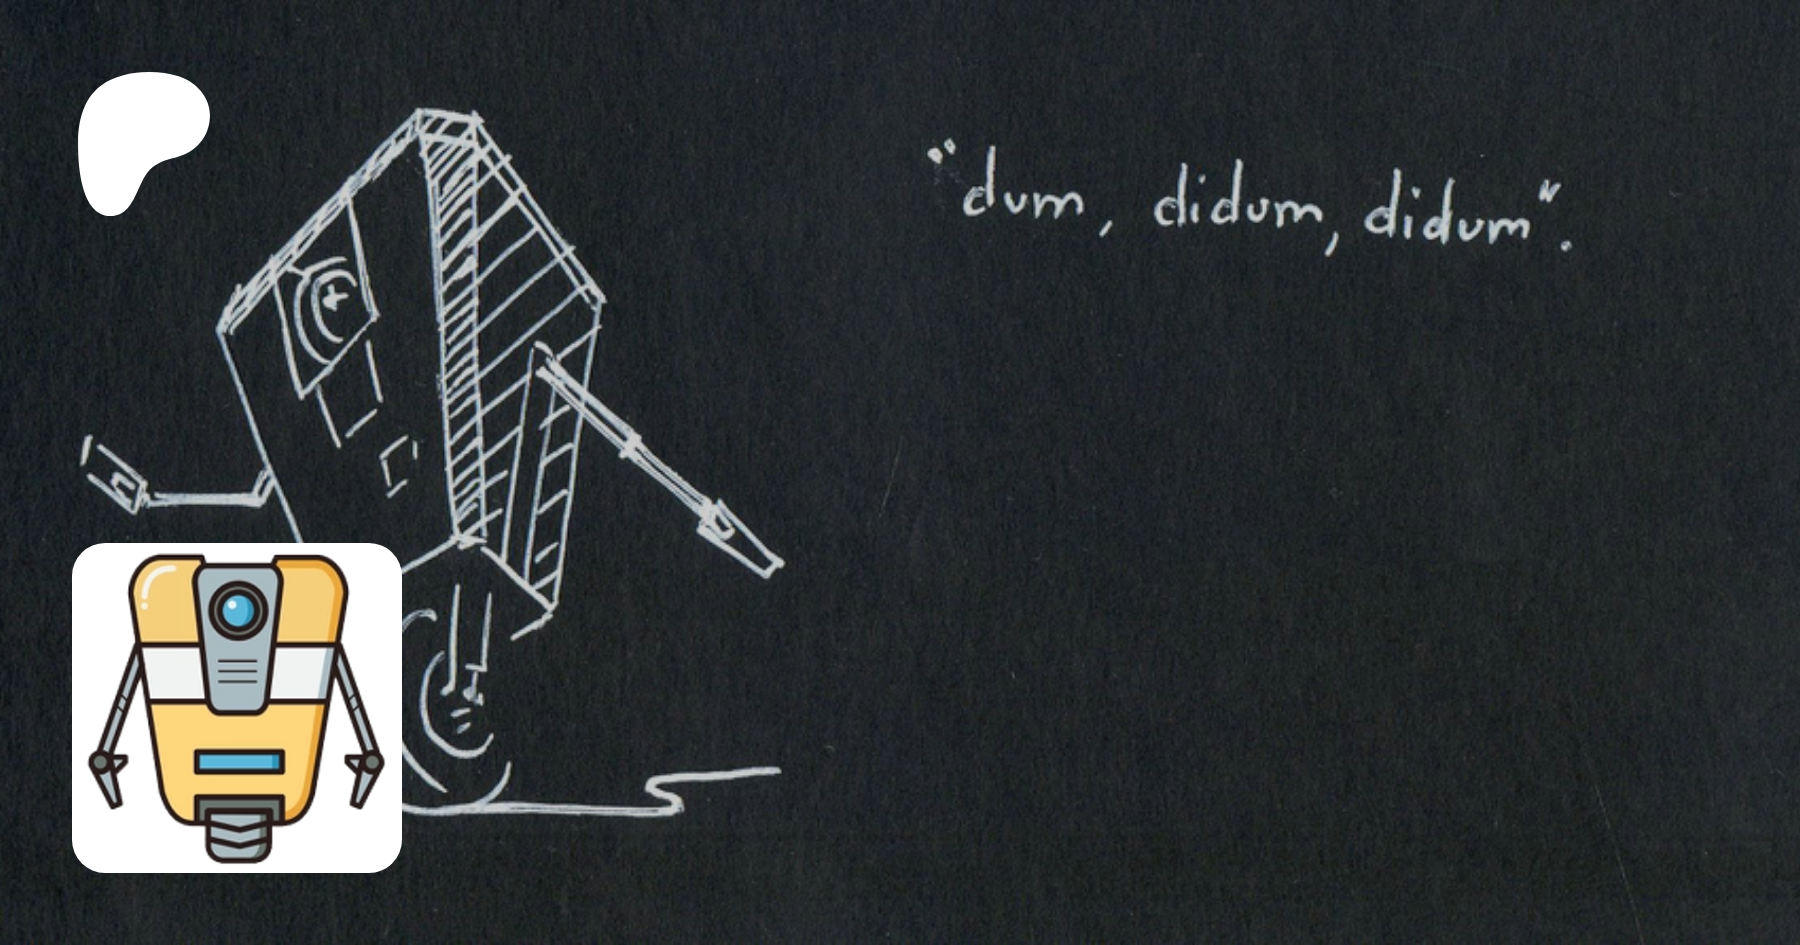 "dum, didum, didum".